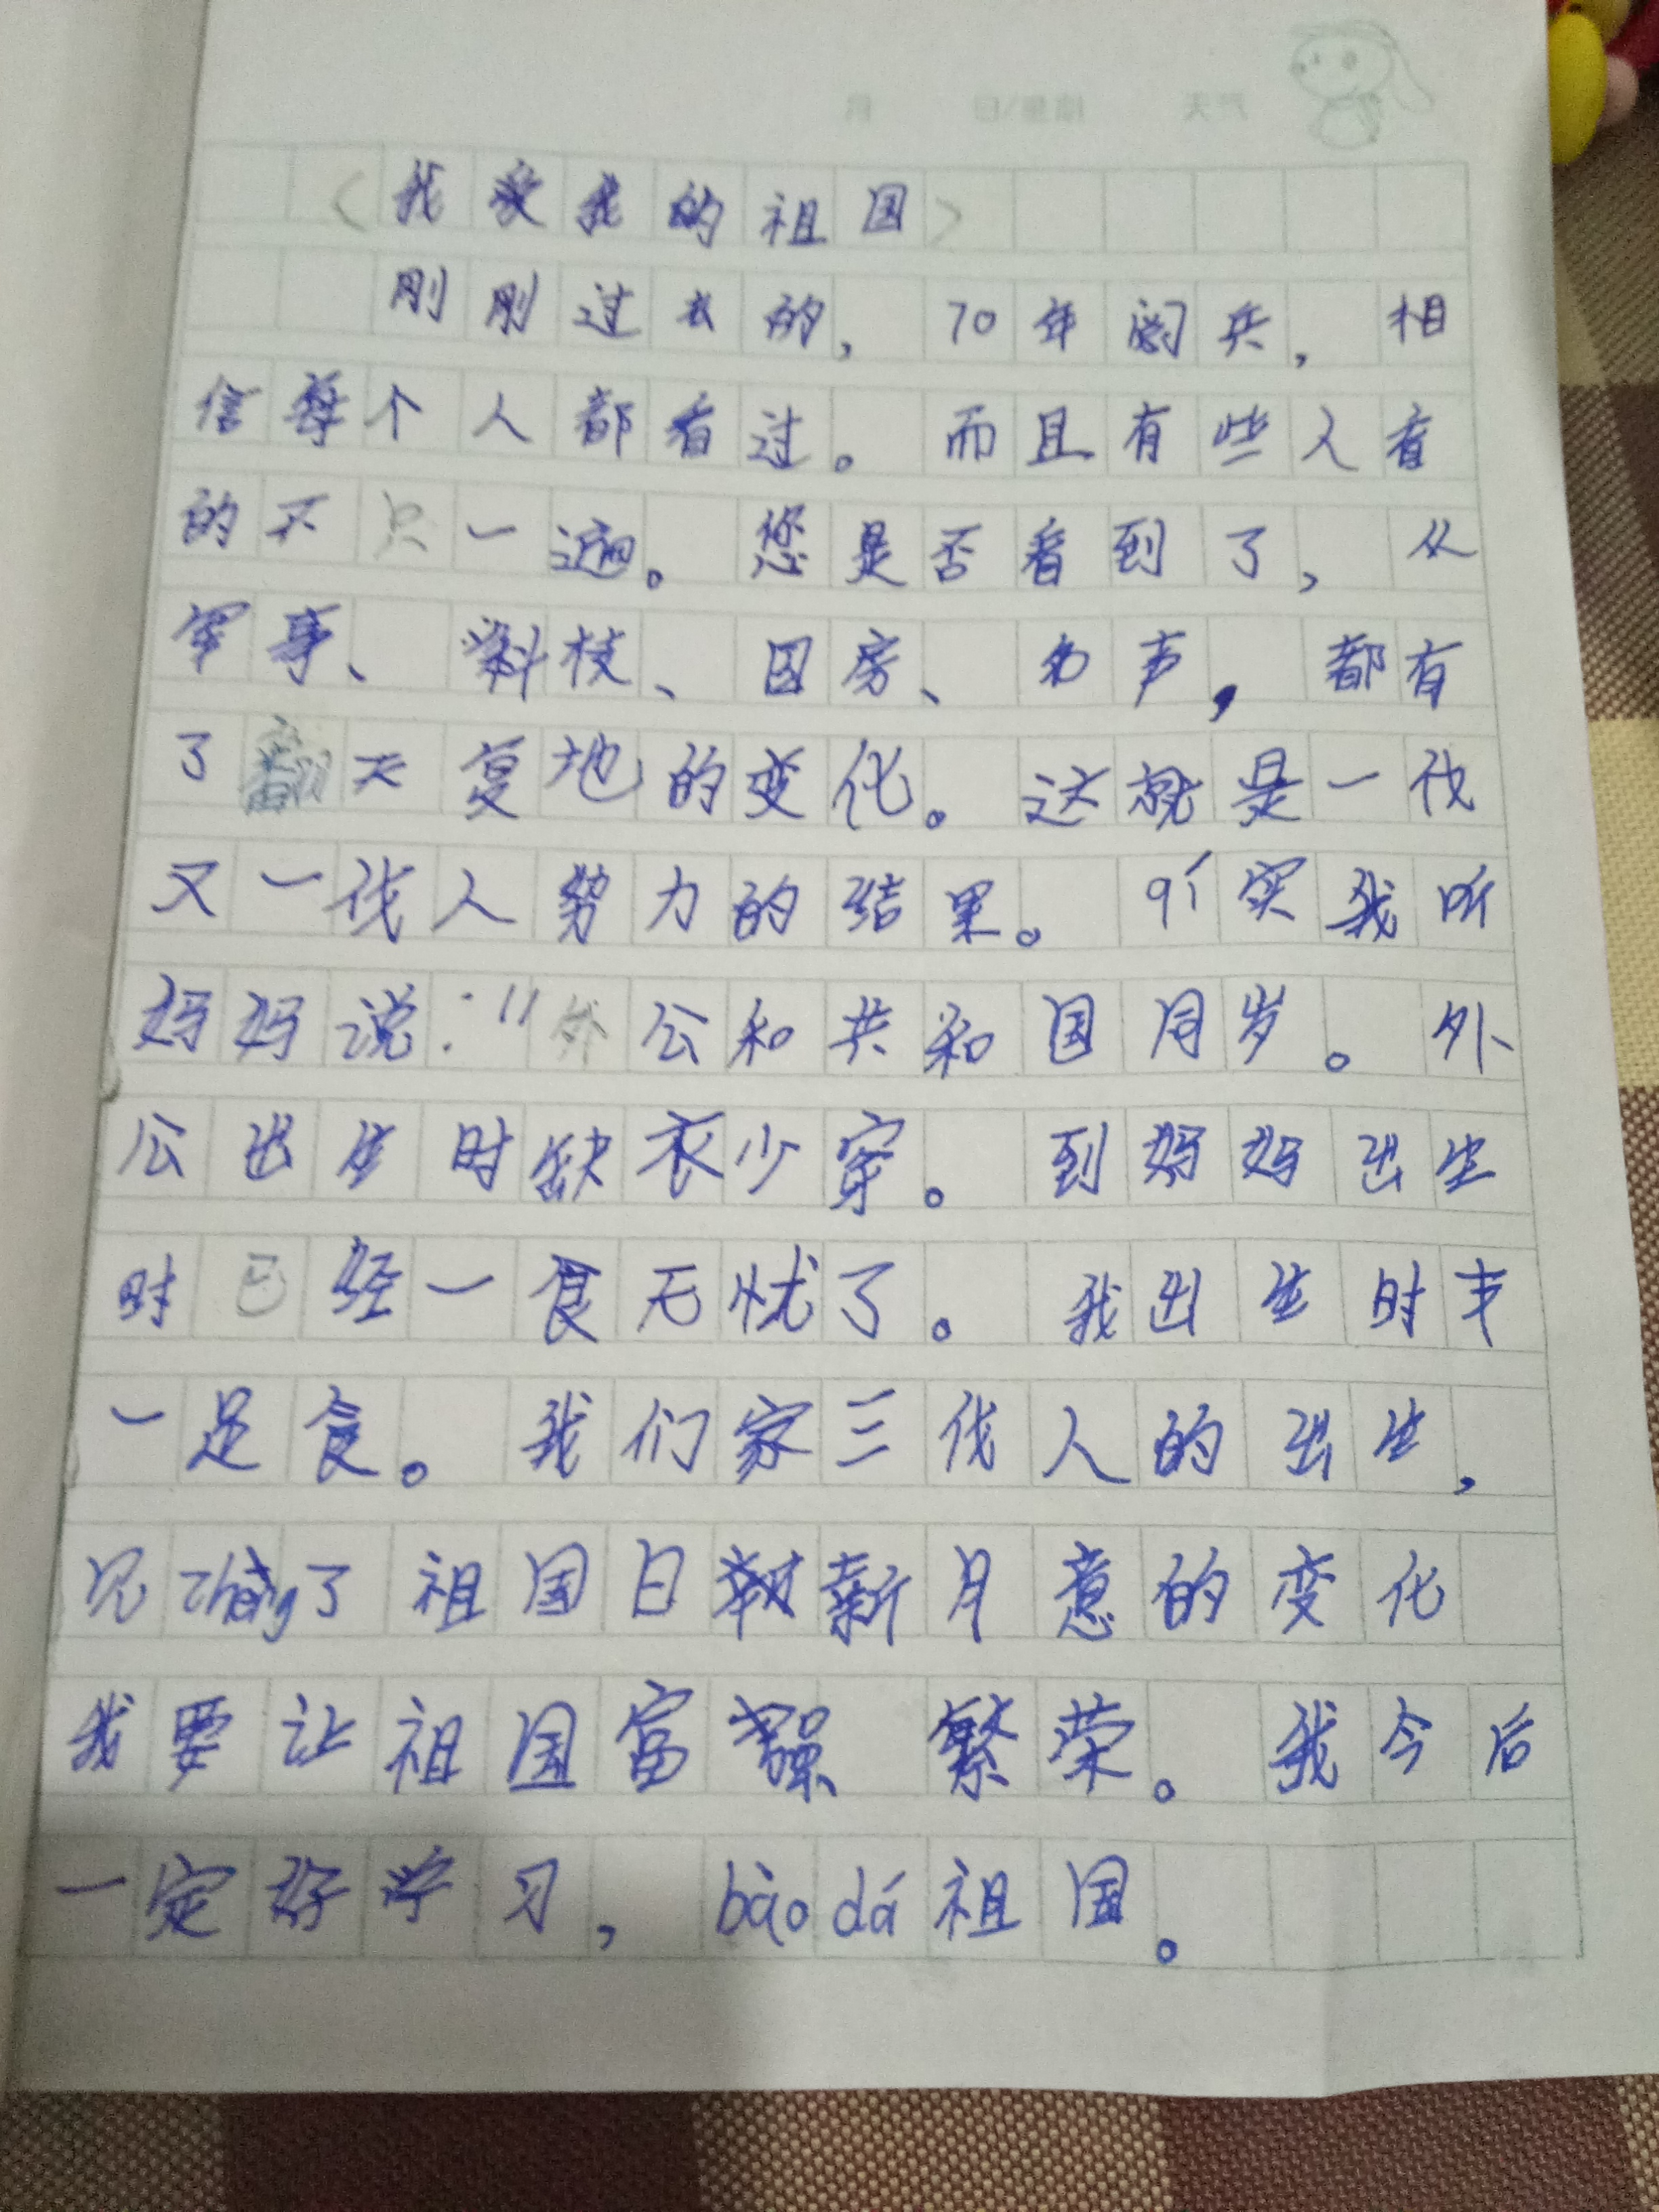 〈我爱我的祖国〉
刚刚过去的，70年阅兵，相
信每个人都看过。而且有些人看
的不只一遍。您是否看到了，从
军事、科技、国房、名声，都有
了翻天复地的变化。这就是一代
又一代人努力的结果。qí实我听
妈妈说："外公和共和国同岁。外
公出生时缺衣少穿。到妈妈出生
时已经一食无忧了。我出生时丰
一足食。我们家三代人的出生，
见zhèng了祖国日新月意的变化
我要让祖国富强 繁荣。我今后
一定好学习，bàodá祖国。